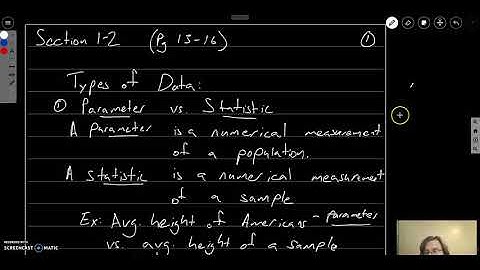 Section 1-2 (Pg 13-16) ①
Types of Data:
① Parameter vs. Statistic
A Parameter is a numerical measurement
of a population.
A statistic is a numerical measurement
of a sample
Ex: Avg. height of Americans - parameter
vs. avg. height of a sample
RECORDED WITH
SCREENCAST-O-MATIC